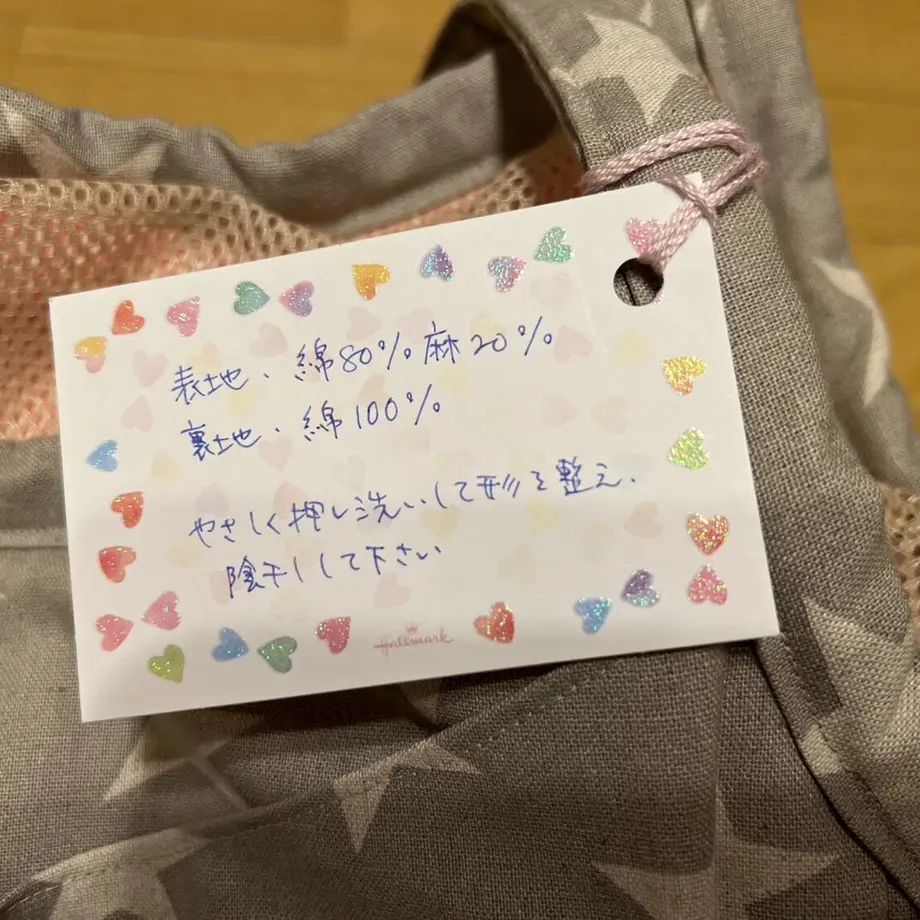 表地、綿80% 麻20%
裏地、綿100%
やさしく押し洗いして形を整え、
陰干しして下さい
Hallmark